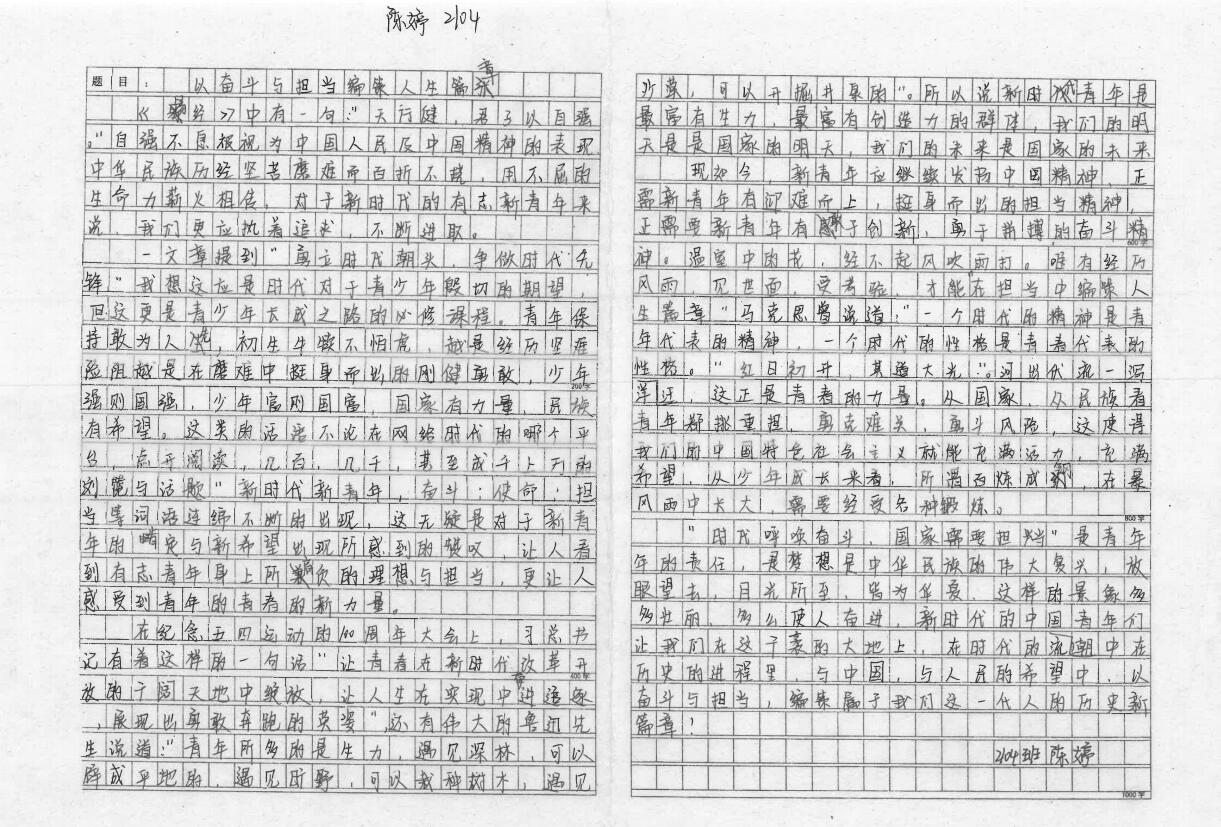 陈婷 2104
题目: 以奋斗与担当编集人生篇章
《易经》中有一句:"天行健,君子以自强
。"自强不息被视为中国人民及中国精神的表现
中华民族历经坚苦磨难而百折不挠,用不屈的
生命力薪火相传,对于新时代的有志新青年来
说,我们更应执着追求,不断进取。
一文章提到"勇立时代潮头,争做时代先
锋"我想这应是时代对于青少年殷切的期望,
但这更是青少年大成之路的必修课程。青年保
持敢为人先,初生牛犊不怕虎,越是经历坚难
险阻越是在磨难中挺身而出的刚健勇敢,少年
强则国强,少年富则国富,国家有力量,民族
有希望。这类的话语不论在网络时代的哪个平
台,点开阅读,几百,几千,甚至成千上万的
浏览与话题"新时代新青年,奋斗;使命;担
当等词语连绵不断的出现,这无疑是对于新青
年的肯定与新希望出现所感到的赞叹,让人看
到有志青年身上所肩负的理想与担当,更让人
感受到青年的青春的新力量。
在纪念五四运动的100周年大会上,习总书
记有着这样的一句话"让青春在新时代改革开
放的广阔天地中绽放,让人生在实现中进追逐
,展现出勇敢奔跑的英姿",还有伟大的鲁迅先
生说道:"青年所多的是生力,遇见深林,可以
辟成平地的,遇见旷野,可以栽种树木,遇见
沙漠,可以开掘井泉的"。所以说新时代青年是
最富有生力,最富有创造力的群体,我们的明
天是是国家的明天,我们的未来是国家的未来
现如今,新青年应继续发扬中国精神,正
需新青年有迎难而上,挺身而出的担当精神,
正需要新青年有敢于创新,勇于拼搏的奋斗精
神。温室中的花,经不起风吹雨打。唯有经历
风雨,见世面,受考验,才能在担当中编集人
生篇章"马克思曾说道:"一个时代的精神是青
年代表的精神,一个时代的性格是青春代表的
性格。""红日初升,其道大光"。河出伏流一泻
洋汪,这正是青春的力量。从国家,从民族看
青年都挑重担,勇克难关,勇斗风险,这使得
我们的中国特色社会主义就能充满活力,充满
希望,从少年成长来看,所谓百炼成钢,在暴
风雨中长大,需要经受各种锻炼。
"时代呼唤奋斗,国家需要担当"是青年
年的责任,是梦想是中华民族的伟大复兴,放
眼望去,目光所至,皆为华夏,这样的景象多
多壮丽,多么使人奋进,新时代的中国青年们
让我们在这广袤的大地上,在时代的流朝中在
历史的进程里,与中国,与人民的希望中,以
奋斗与担当,编集属于我们这一代人的历史新
篇章!
2104班 陈婷
200字
400字
600字
800字
1000字